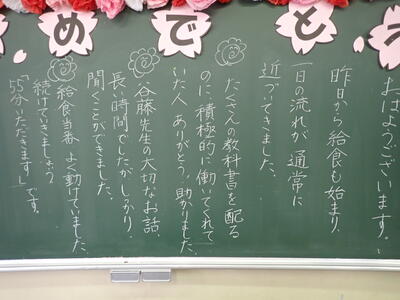 めでとう
おはようございます。
昨日から給食も始まり、
一日の流れが通常に
近づいてきました。
たくさんの教科書を配る
のに積極的に働いてくれて
いた人ありがとう。助かりました。
谷藤先生の大切なお話、
長い時間でしたがしっかり
聞くことができました。
給食当番よく動けていました。
続けていきましょう。
「55分いただきます」です。